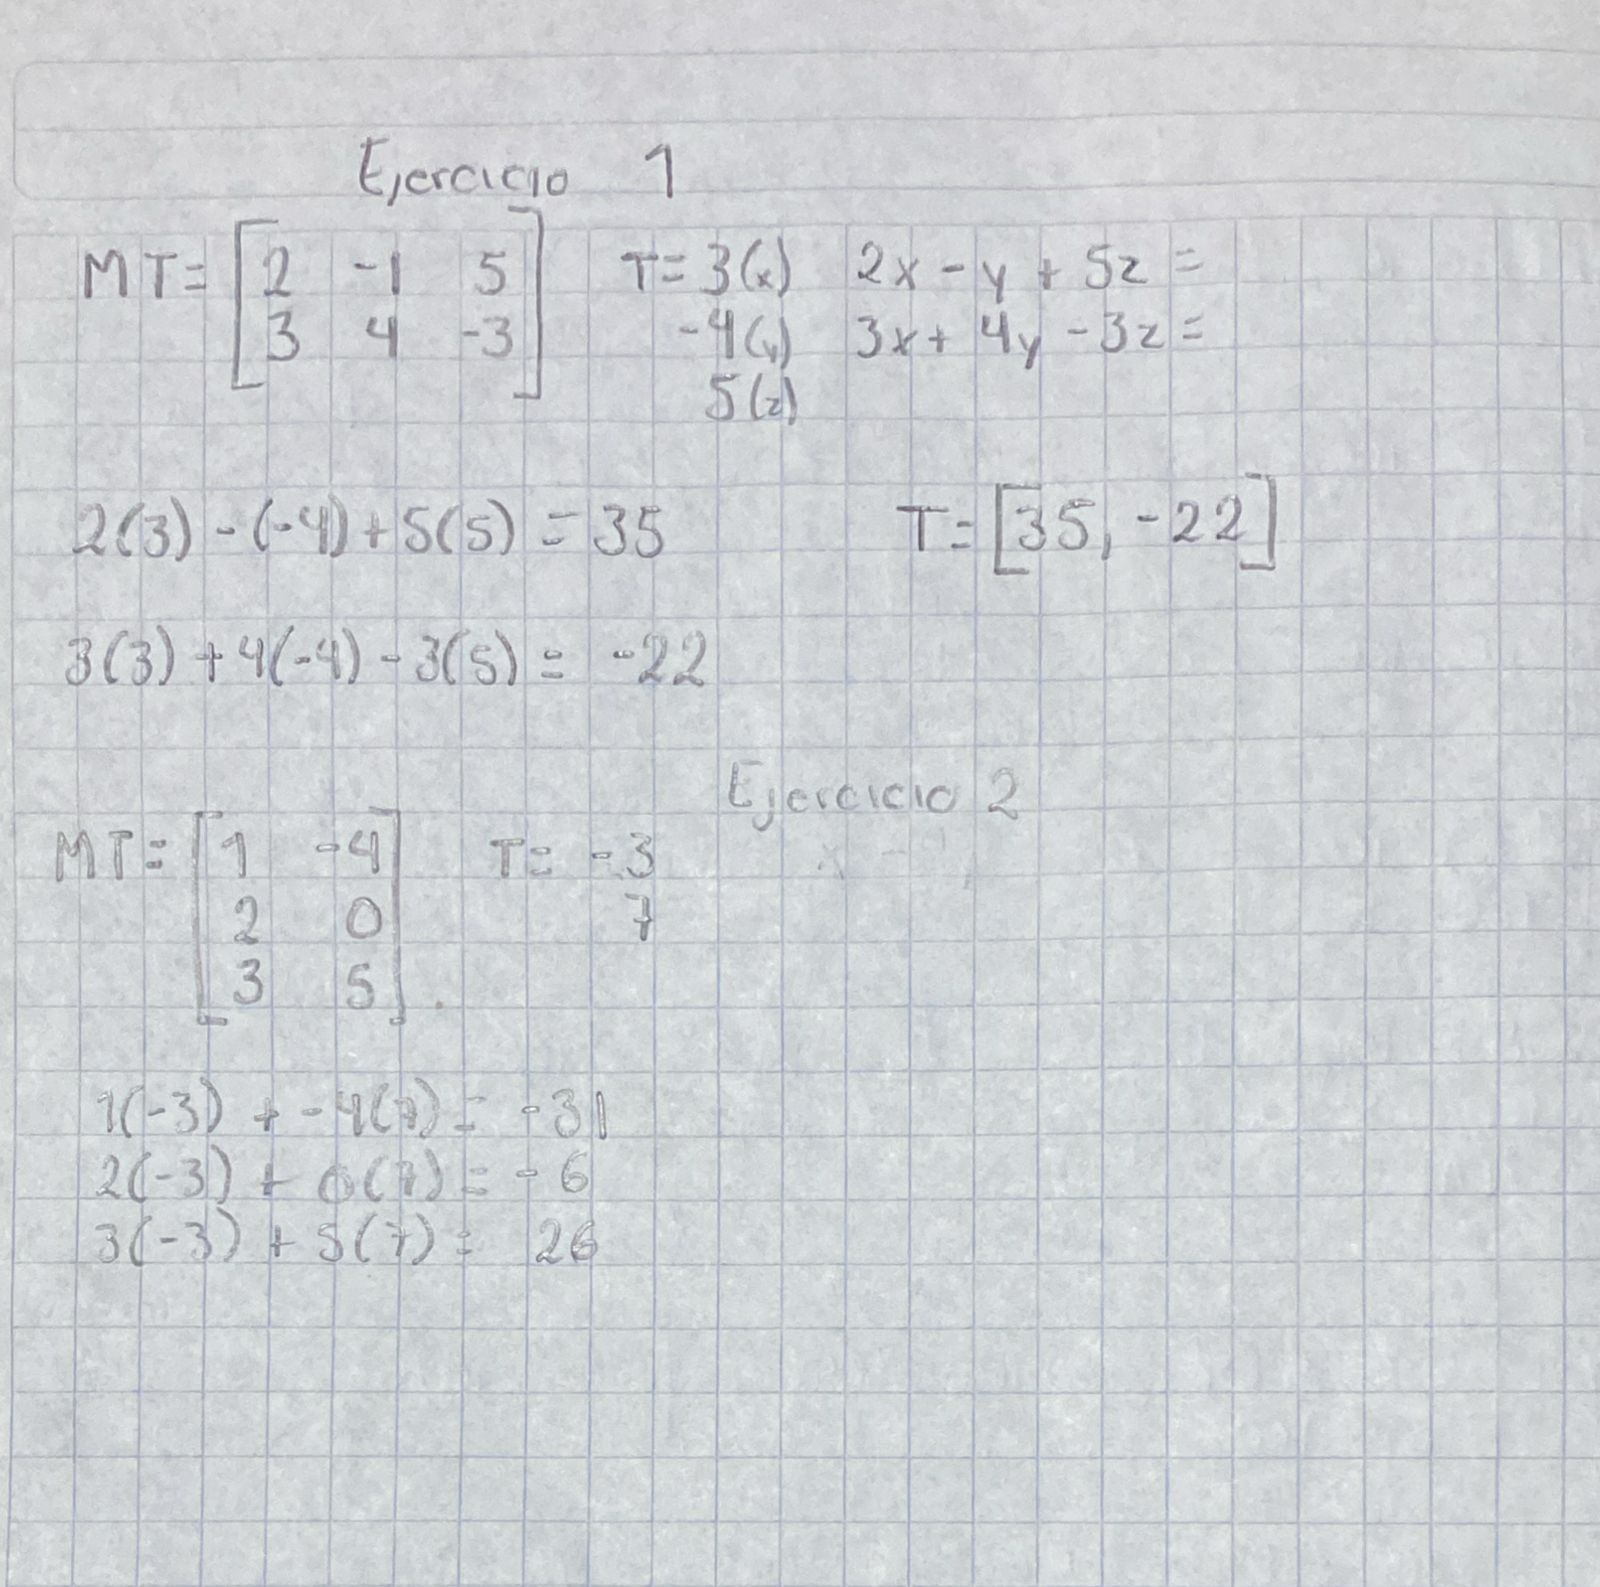 Ejercicio 1
MT= [2 -1 5 T= 3(x) 2x - y + 5z =
3 4 -3] -4(y) 3x + 4y - 3z =
5(z)
2(3) - (-4) + 5(5) = 35 T= [35, -22]
3(3) + 4(-4) - 3(5) = -22
Ejercicio 2
MT= [1 -4 T= -3
2 0 7
3 5]
1(-3) + -4(7) = -31
2(-3) + 0(7) = -6
3(-3) + 5(7) = 26